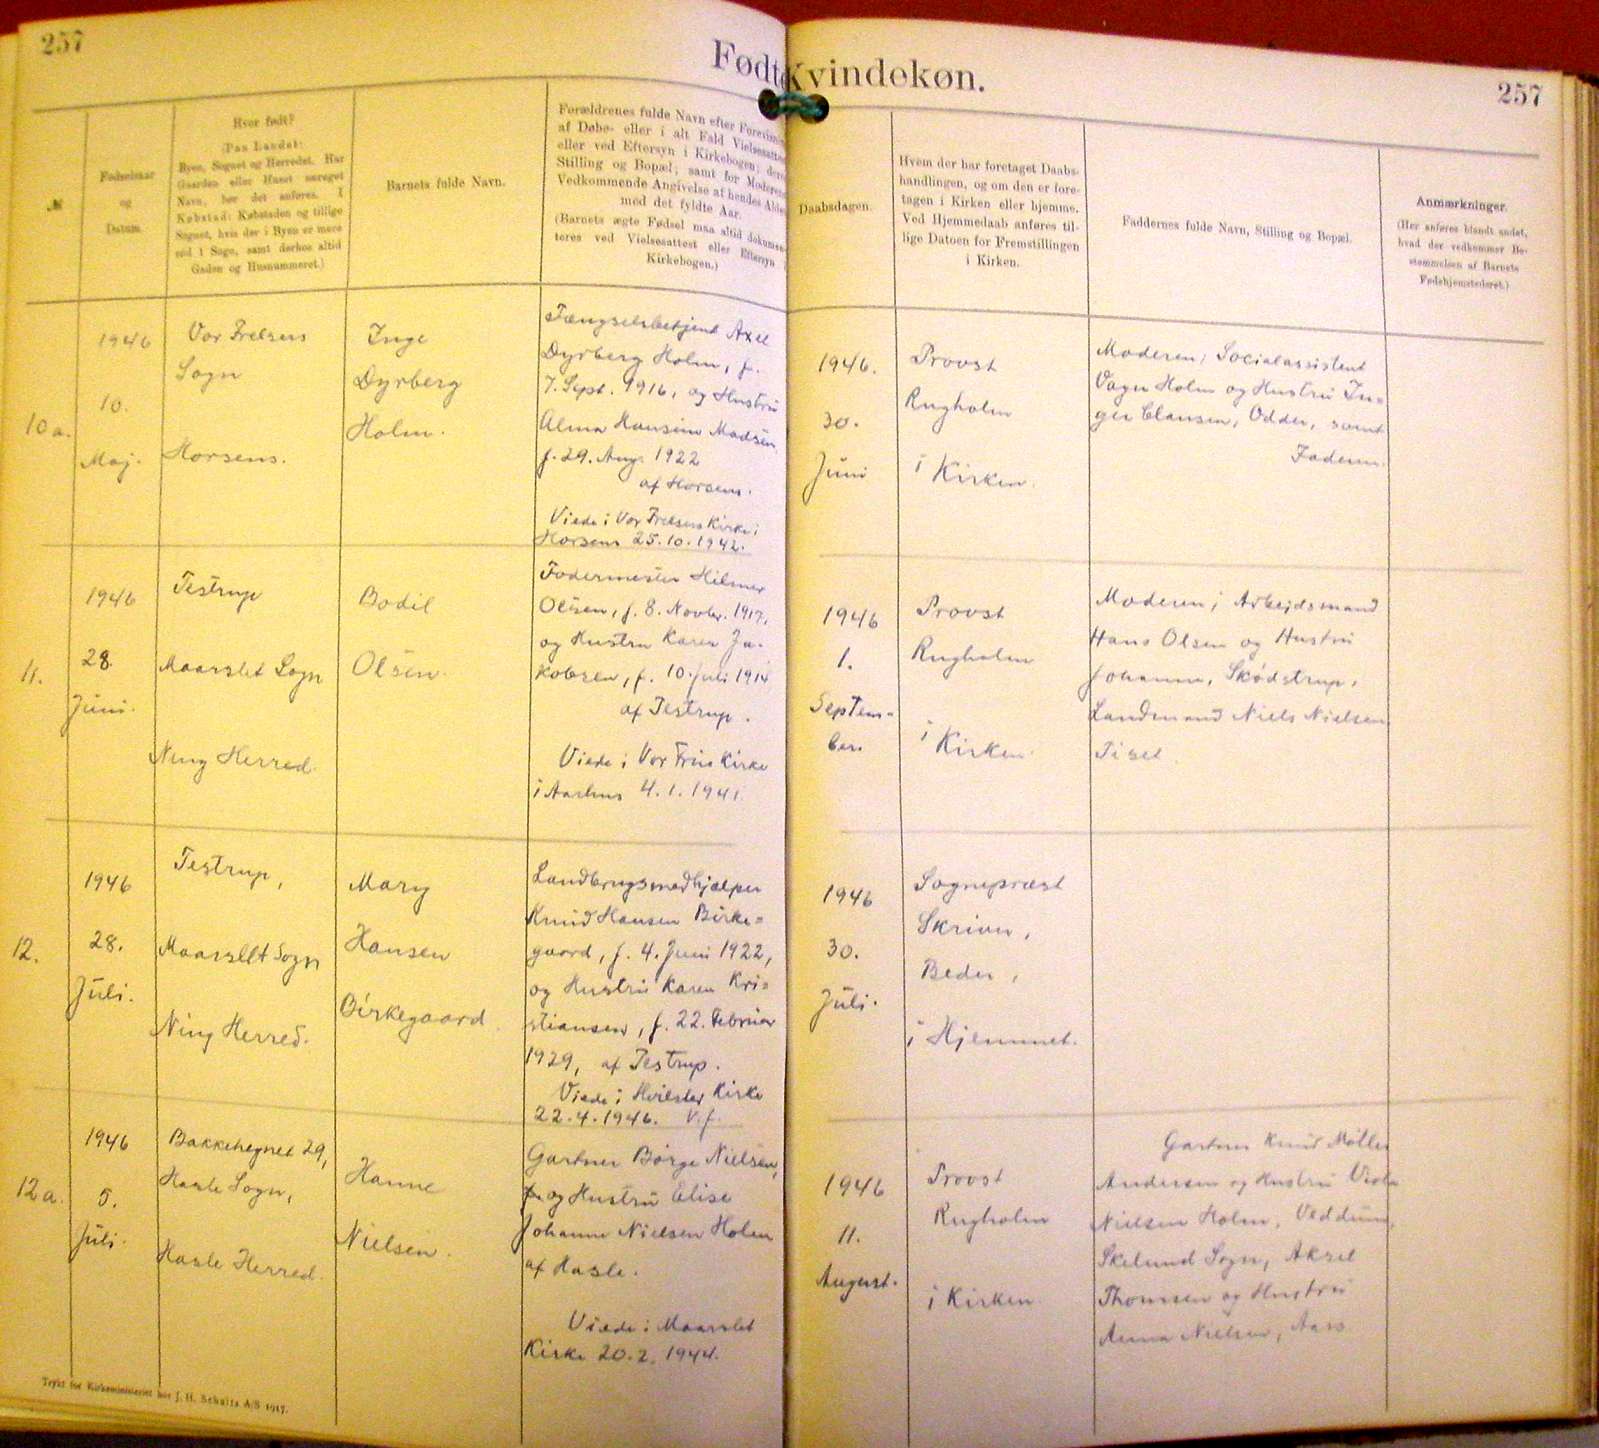 257
Fødte Kvindekøn.
257
№
Fødselsaar
og
Datum.
Hvor født?
(Paa Landet:
Byen, Sognet og Herredet. Har
Gaarden eller Huset særeget
Navn, bør det anføres. I
Købstad: Købstaden og tillige
Sognet, hvis der i Byen er mere
end 1 Sogn, samt derhos altid
Gaden og Husnummeret.)
Barnets fulde Navn.
Forældrenes fulde Navn efter
af Døbe- eller i alt Fald
eller ved Eftersyn i Kirkebogen;
Stilling og Bopæl; samt for
Vedkommende Angivelse af hendes
med det fyldte Aar.
(Barnets ægte Fødsel maa altid
teres ved Vielsesattest eller Eftersyn i
Kirkebogen.)
Daabsdagen.
Hvem der har foretaget Daabs-
handlingen, og om den er fore-
tagen i Kirken eller hjemme.
Ved Hjemmedaab anføres til-
lige Datoen for Fremstillingen
i Kirken.
Faddernes fulde Navn, Stilling og Bopæl.
Anmærkninger.
(Her anføres blandt andet,
hvad der vedkommer Be-
stemmelsen af Barnets
Fødehjemstedsret.)
10a.
1946
10.
Maj.
Vor Frelsers
Sogn
Horsens.
Inge
Dyrberg
Holm.
Fængselsbetjent Axel
Dyrberg Holm, f.
7. Sept. 1916, og Hustru
Alma Hansine Madsen
f. 29. Aug. 1922
af Horsens.
Viede i Vor Frelsers Kirke i
Horsens 25.10.1942.
1946.
30.
Juni
Provst
Rugholm
i Kirken.
Moderen; Socialassistent
Vagn Holm og Hustru In=
ger Clausen, Odder, samt
Faderen.
11.
1946
28
Juni.
Testrup
Maarslet Sogn
Ning Herred.
Bodil
Olsen.
Fodermester Hilmer
Olsen, f. 8. Novbr. 1917,
og Hustru Karen Ja-
kobsen, f. 10. Juli 1914
af Testrup.
Viede i Vor Frue Kirke
i Aarhus 4.1.1941.
1946
1.
Septem=
ber.
Provst
Rugholm
i Kirken.
Moderen; Arbejdsmand
Hans Olsen og Hustru
Johanne, Skødstrup,
Landmand Niels Nielsen
Tiset.
12.
1946
28.
Juli.
Testrup,
Maarslet Sogn
Ning Herred.
Mary
Hansen
Birkegaard.
Landbrugsmedhjælper
Knud Hansen Birke=
gaard, f. 4. Juni 1922,
og Hustru Karen Kri=
stiansen, f. 22. Februar
1929, af Testrup.
Viede i Kirke
22.4.1946. V.f.
1946
30.
Juli.
Sognepræst
Skriver,
Beder,
i Hjemmet.
12a.
1946
5.
Juli.
Bakkehegnet 29,
Hasle Sogn,
Hasle Herred.
Hanne
Nielsen.
Gartner Børge Nielsen,
og Hustru Elise
Johanne Nielsen Holm
af Hasle.
Viede i Maarslet
Kirke 20.2.1944.
1946
11.
August.
Provst
Rugholm
i Kirken.
Gartner Knud Møller
Andersen og Hustru Viola
Nielsen Holm, Veddum,
Skelund Sogn, Aksel
Thomsen og Hustru
Anna Nielsen,
Trykt for Kirkeministeriet hos J. H. Schultz A/S 1917.